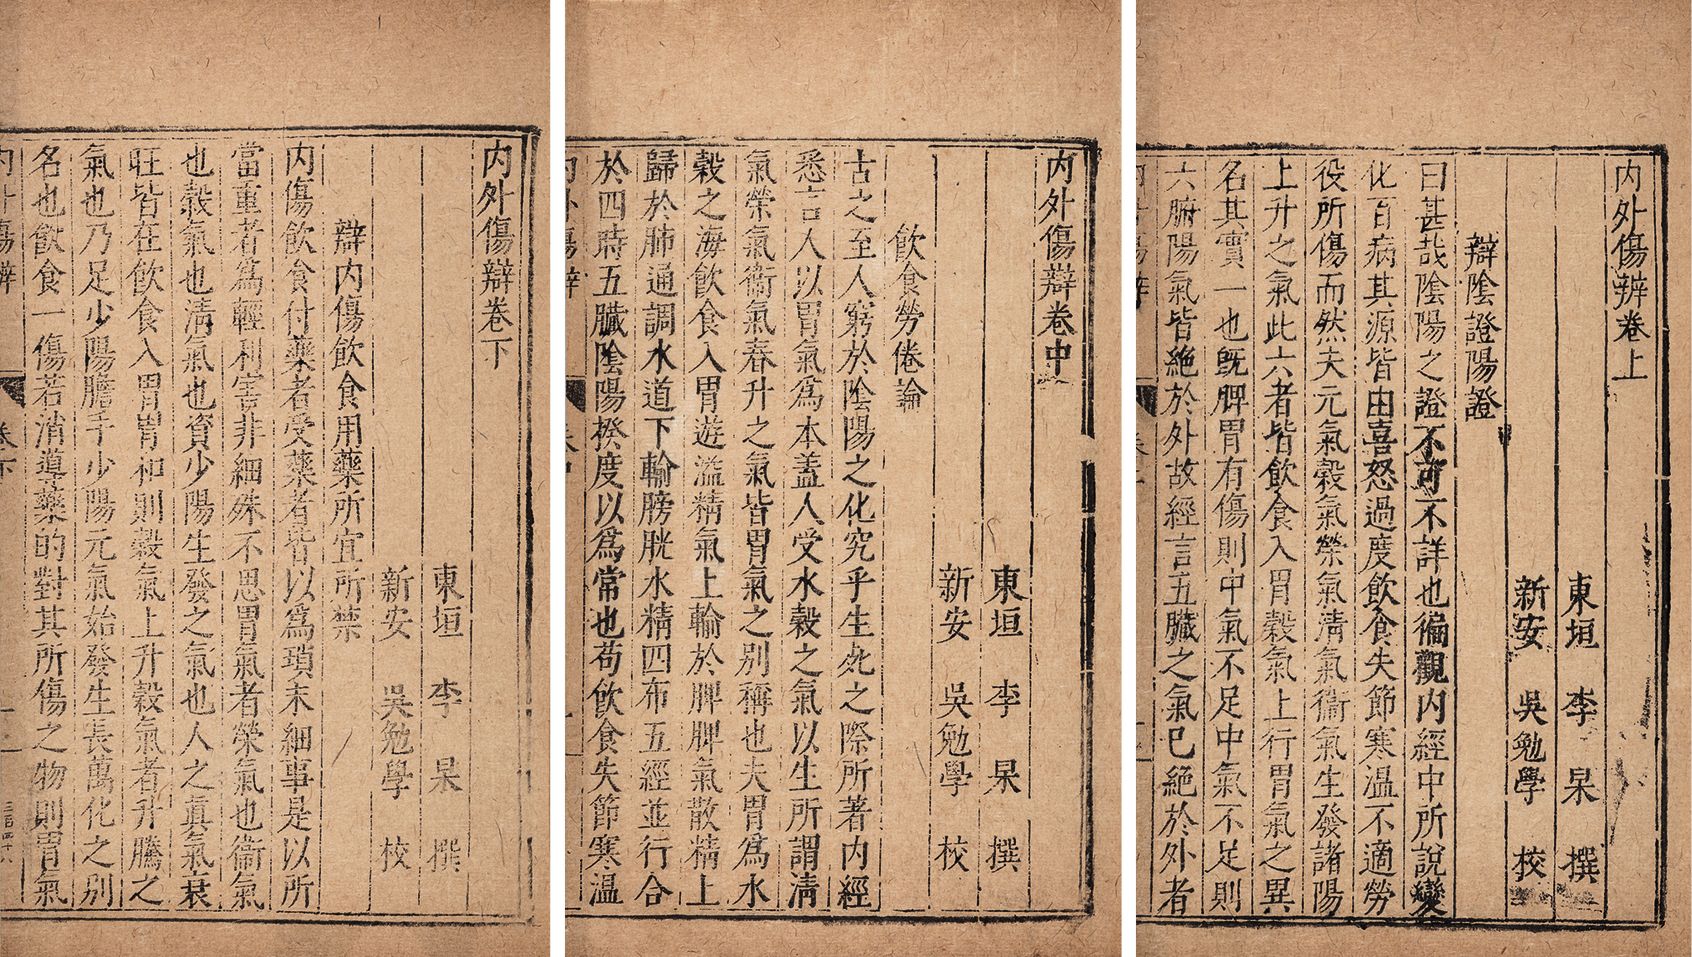 内外傷辯卷上
東垣 李杲 撰
新安 吳勉學 校
辯陰證陽證
曰甚哉陰陽之證不可不詳也徧觀内經中所說變
化百病其源皆由喜怒過度飲食失節寒温不適勞
役所傷而然夫元氣穀氣榮氣清氣衞氣生發諸陽
上升之氣此六者皆飲食入胃穀氣上行胃氣之異
名其實一也旣脾胃有傷則中氣不足中氣不足則
六腑陽氣皆絶於外故經言五臟之氣已絶於外者
内外傷辯卷中
東垣 李杲 撰
新安 吳勉學 校
飲食勞倦論
古之至人窮於陰陽之化究乎生死之際所著内經
悉言人以胃氣爲本蓋人受水穀之氣以生所謂清
氣榮氣衞氣春升之氣皆胃氣之别稱也夫胃爲水
穀之海飲食入胃遊溢精氣上輸於脾脾氣散精上
歸於肺通調水道下輸膀胱水精四布五經並行合
於四時五臟陰陽揆度以爲常也苟飲食失節寒温
内外傷辯卷下
東垣 李杲 撰
新安 吳勉學 校
辯内傷飲食用藥所宜所禁
内傷飲食付藥者受藥者皆以爲瑣末細事是以所
當重者爲輕利害非細殊不思胃氣者榮氣也衞氣
也穀氣也清氣也資少陽生發之氣也人之眞氣衰
旺皆在飲食入胃胃和則穀氣上升穀氣者升騰之
氣也乃足少陽膽手少陽元氣始發生長萬化之别
名也飲食一傷若消導藥的對其所傷之物則胃氣